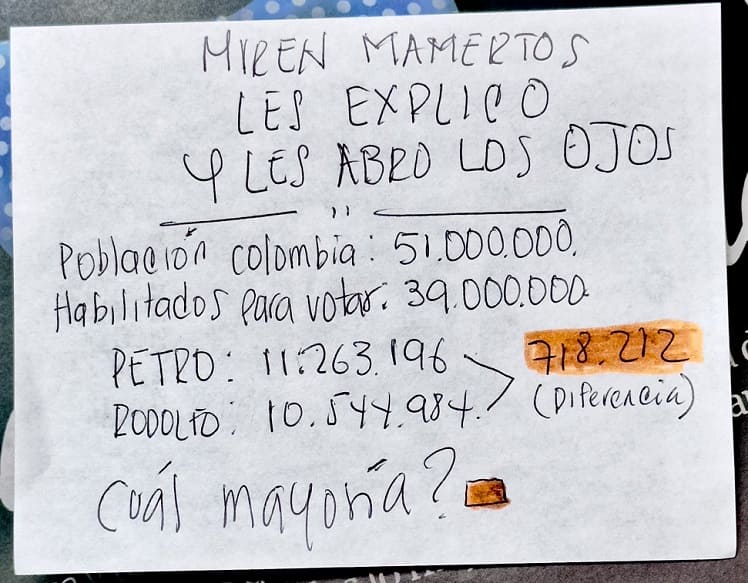 MIREN MAMERTOS
LES EXPLICO
Y LES ABRO LOS OJOS
"
Población colombia: 51.000.000.
Habilitados para votar: 39.000.000.
PETRO: 11.263.196
718.212
RODOLFO: 10.544.984.
(Diferencia)
Cuál mayoría?